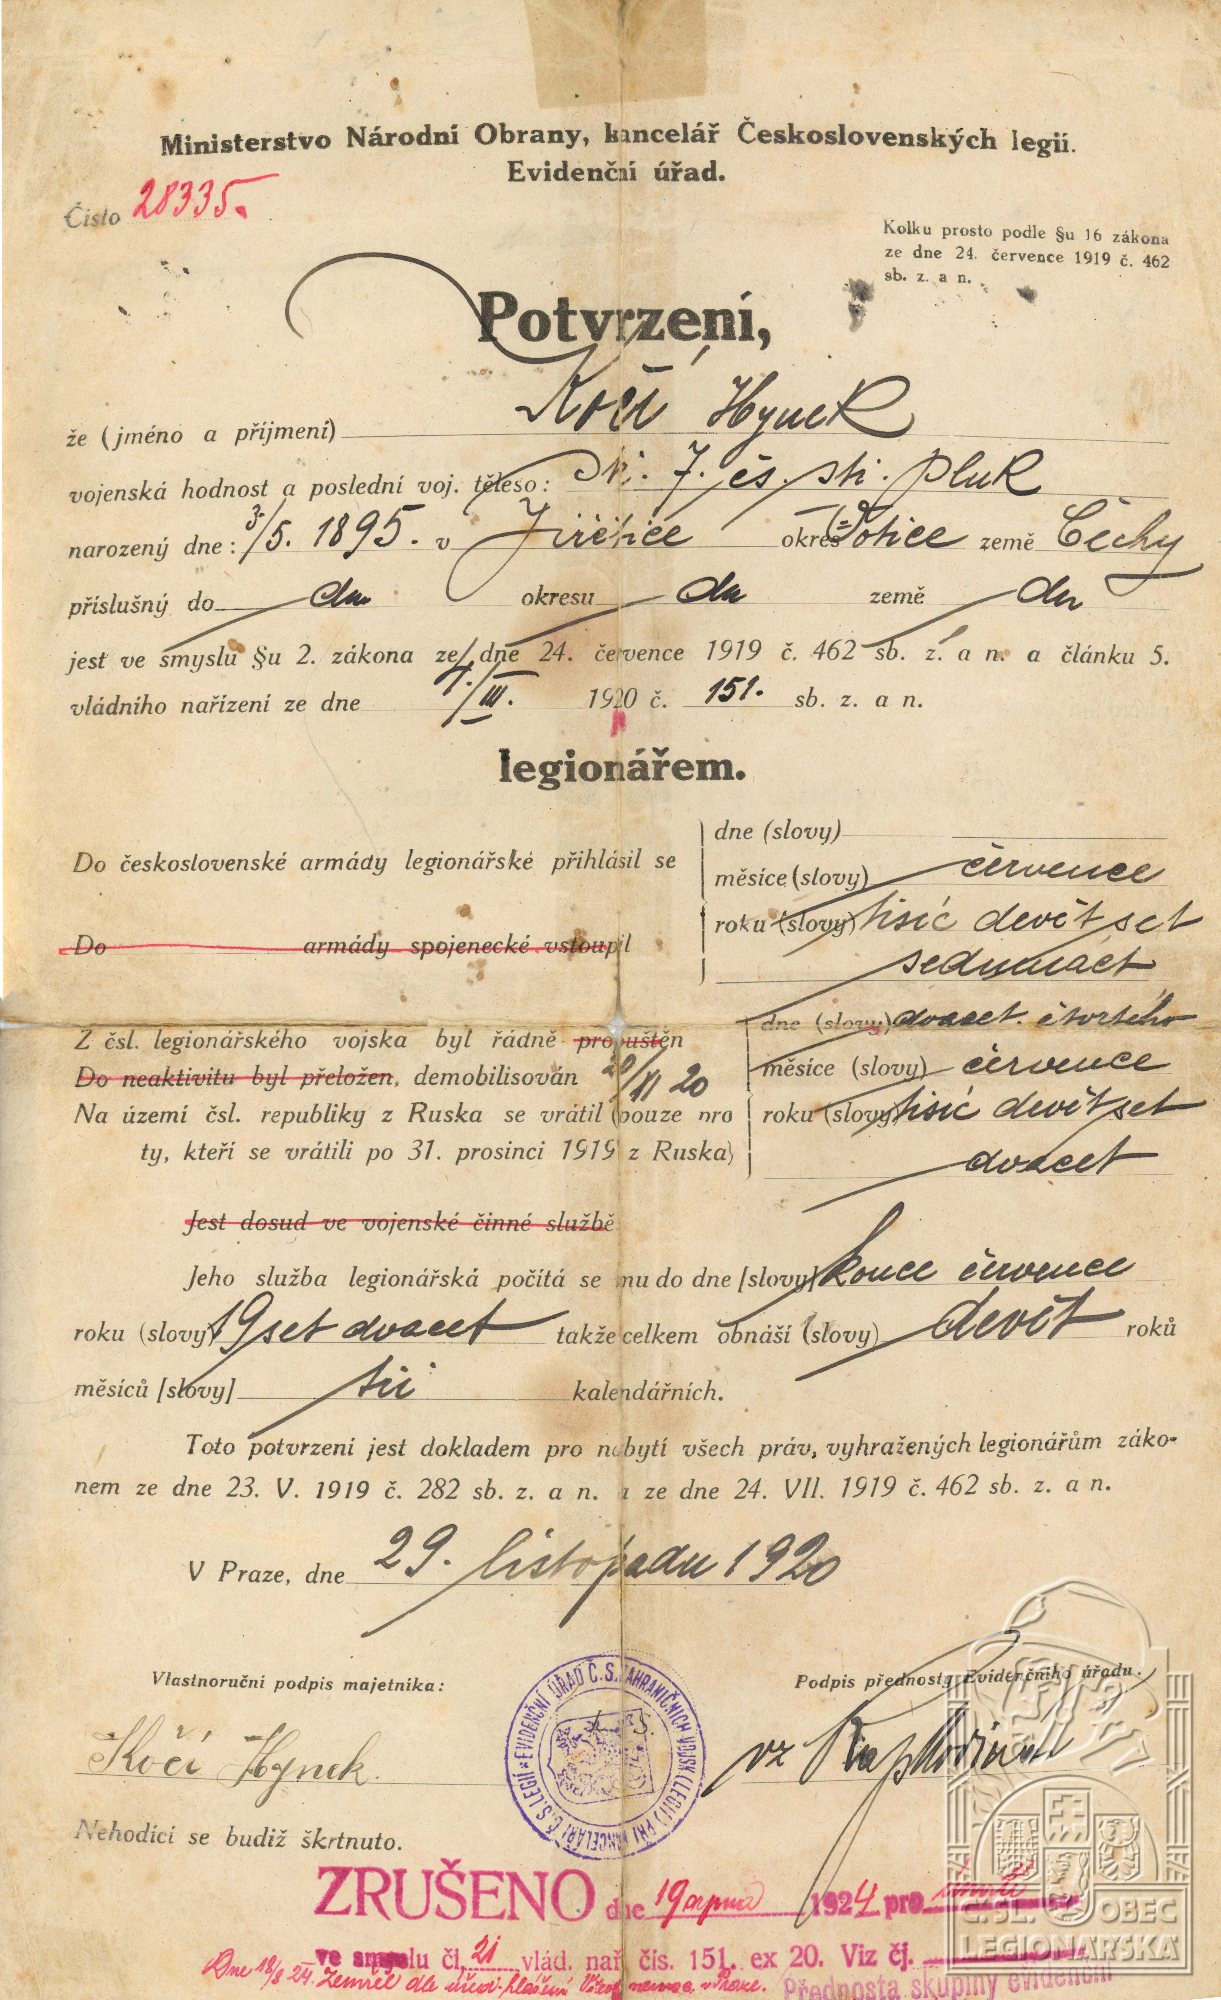 Ministerstvo Národní Obrany, kancelář Československých legií.
Evidenční úřad.
Číslo 28335.
Kolku prosto podle §u 16 zákona
ze dne 24. července 1919 č. 462
sb. z. a n.
Potvrzení,
že (jméno a příjmení) Kočí Hynek
vojenská hodnost a poslední voj. těleso: 7. čs. stř. pluk
narozený dne: 3./5. 1895. v Jiřetice okres Votice země Čechy
příslušný do dtto okresu dtto země dtto
jest ve smyslu §u 2. zákona ze dne 24. července 1919 č. 462 sb. z. a n. a článku 5.
vládního nařízení ze dne 4./III. 1920 č. 151. sb. z. a n.
legionářem.
Do československé armády legionářské přihlásil se
dne (slovy)
měsíce (slovy) července
roku (slovy) tisíc devět set
sedmnáct
Do armády spojenecké vstoupil
Z čsl. legionářského vojska byl řádně propuštěn
Do neaktivitu byl přeložen, demobilisován 20/XI 20
Na území čsl. republiky z Ruska se vrátil (pouze pro
ty, kteří se vrátili po 31. prosinci 1919 z Ruska)
dne (slovy) dvacet. čtvrtého
měsíce (slovy) července
roku (slovy) tisíc devět set
dvacet
Jest dosud ve vojenské činné službě
Jeho služba legionářská počítá se mu do dne [slovy] konce července
roku (slovy) 19set dvacet takže celkem obnáší (slovy) devět roků
měsíců [slovy] tři kalendářních.
Toto potvrzení jest dokladem pro nabytí všech práv, vyhražených legionářům záko-
nem ze dne 23. V. 1919 č. 282 sb. z. a n. a ze dne 24. VII. 1919 č. 462 sb. z. a n.
V Praze, dne 29. listopadu 1920
Vlastnoruční podpis majetníka:
Podpis přednosty Evidenčního úřadu.
Kočí Hynek.
EVIDENČNÍ ÚŘAD Č.S. ZAHRANIČNÍCH VOJSK (LEGIÍ) PŘI KANCELÁŘI Č.S. LEGIÍ
vz
Nehodící se budiž škrtnuto.
ZRUŠENO dne 19 srpna 1924 pro úmrtí
ve smyslu čl. 21 vlád. nař. čís. 151. ex 20. Viz čj.
Dne 18/8 24. zemřel dle úřed. hlášení nemoc. v Praze.
Přednosta skupiny evidenční
ČSL. OBEC
LEGIONÁŘSKÁ